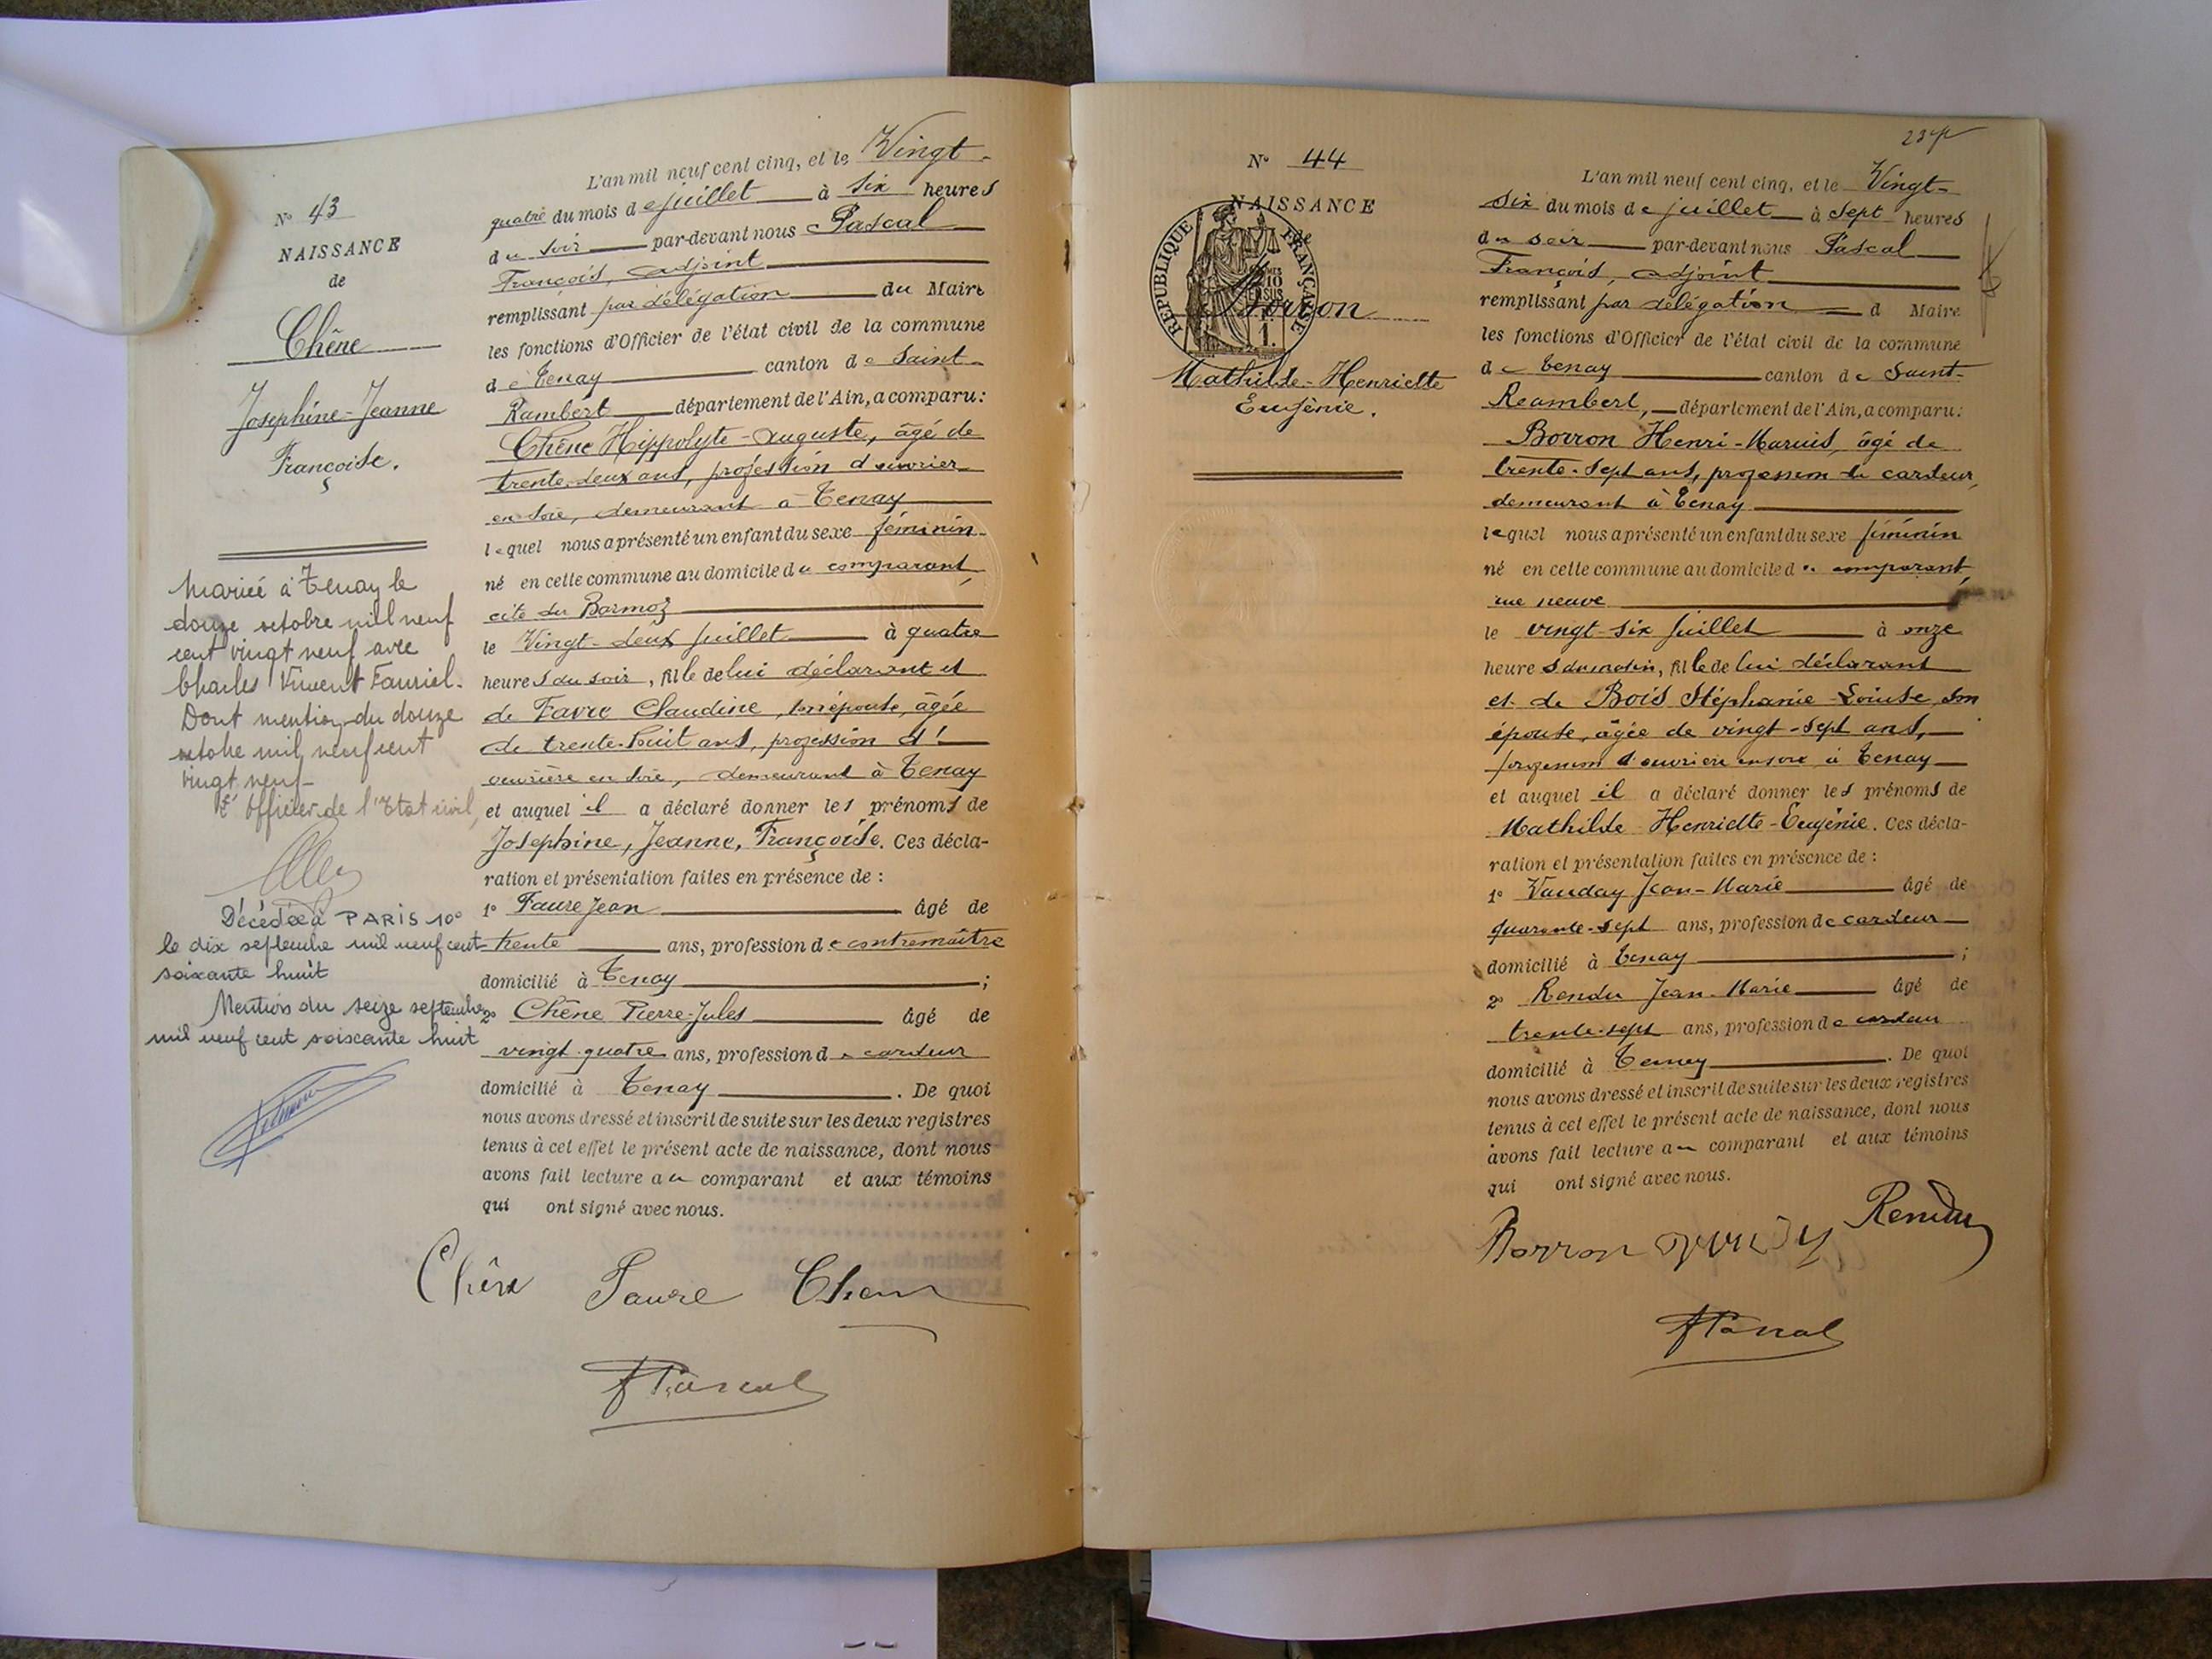 N° 43
NAISSANCE
de
Chêne
Josephine-Jeanne
Françoise.
Mariée à Tenay le
douze octobre mil neuf
cent vingt neuf avec
Charles Vincent Fauriel.
Dont mention du douze
octobre mil neuf cent
vingt neuf
L'officier de l'Etat civil,
Décédée à PARIS 10°
le dix septembre mil neuf cent
soixante huit
Mention du seize septembre
mil neuf cent soixante huit
L'an mil neuf cent cinq, et le Vingt-
quatre du mois de juillet à six heures
du soir par-devant nous Pascal
François, adjoint
remplissant par délégation du Maire
les fonctions d'Officier de l'état civil de la commune
de Tenay canton de Saint-
Rambert département de l'Ain, a comparu:
Chêne Hippolyte-Auguste, âgé de
trente-deux ans, profession d'ouvrier
en soie, demeurant à Tenay
lequel nous a présenté un enfant du sexe féminin
né en cette commune au domicile du comparant,
cité du Barmoz
le Vingt-deux juillet à quatre
heures du soir, fille de lui déclarant et
de Favre Claudine, son épouse, âgée
de trente-huit ans, profession d'
ouvrière en soie, demeurant à Tenay
et auquel il a déclaré donner les prénoms de
Josephine, Jeanne, Françoise. Ces décla-
ration et présentation faites en présence de :
1° Faure Jean âgé de
trente ans, profession de contremaître
domicilié à Tenay ;
2° Chêne Pierre-Jules âgé de
vingt-quatre ans, profession de cardeur
domicilié à Tenay . De quoi
nous avons dressé et inscrit de suite sur les deux registres
tenus à cet effet le présent acte de naissance, dont nous
avons fait lecture au comparant et aux témoins
qui ont signé avec nous.
Chêne Faure Chene
F Pascal
N° 44
NAISSANCE
de
RÉPUBLIQUE FRANÇAISE
Borron
Mathilde-Henriette
Eugénie.
L'an mil neuf cent cinq, et le Vingt-
six du mois de juillet à sept heures
du soir par-devant nous Pascal
François, adjoint
remplissant par délégation d Maire
les fonctions d'Officier de l'état civil de la commune
de Tenay canton de Saint-
Rambert, département de l'Ain, a comparu:
Borron Henri-Marius, âgé de
trente-sept ans, profession de cardeur,
demeurant à Tenay
lequel nous a présenté un enfant du sexe féminin
né en cette commune au domicile du comparant,
rue neuve
le vingt-six juillet à onze
heures du matin, fille de lui déclarant
et de Bois Stéphanie-Louise, son
épouse, âgée de vingt-sept ans,
profession d'ouvrière en soie à Tenay
et auquel il a déclaré donner les prénoms de
Mathilde Henriette-Eugénie. Ces décla-
ration et présentation faites en présence de :
1° Vauday Jean-Marie âgé de
quarante-sept ans, profession de cardeur
domicilié à Tenay ;
2° Rendu Jean-Marie âgé de
trente-sept ans, profession de cardeur
domicilié à Tenay . De quoi
nous avons dressé et inscrit de suite sur les deux registres
tenus à cet effet le présent acte de naissance, dont nous
avons fait lecture au comparant et aux témoins
qui ont signé avec nous.
Borron Rendu
F Pascal